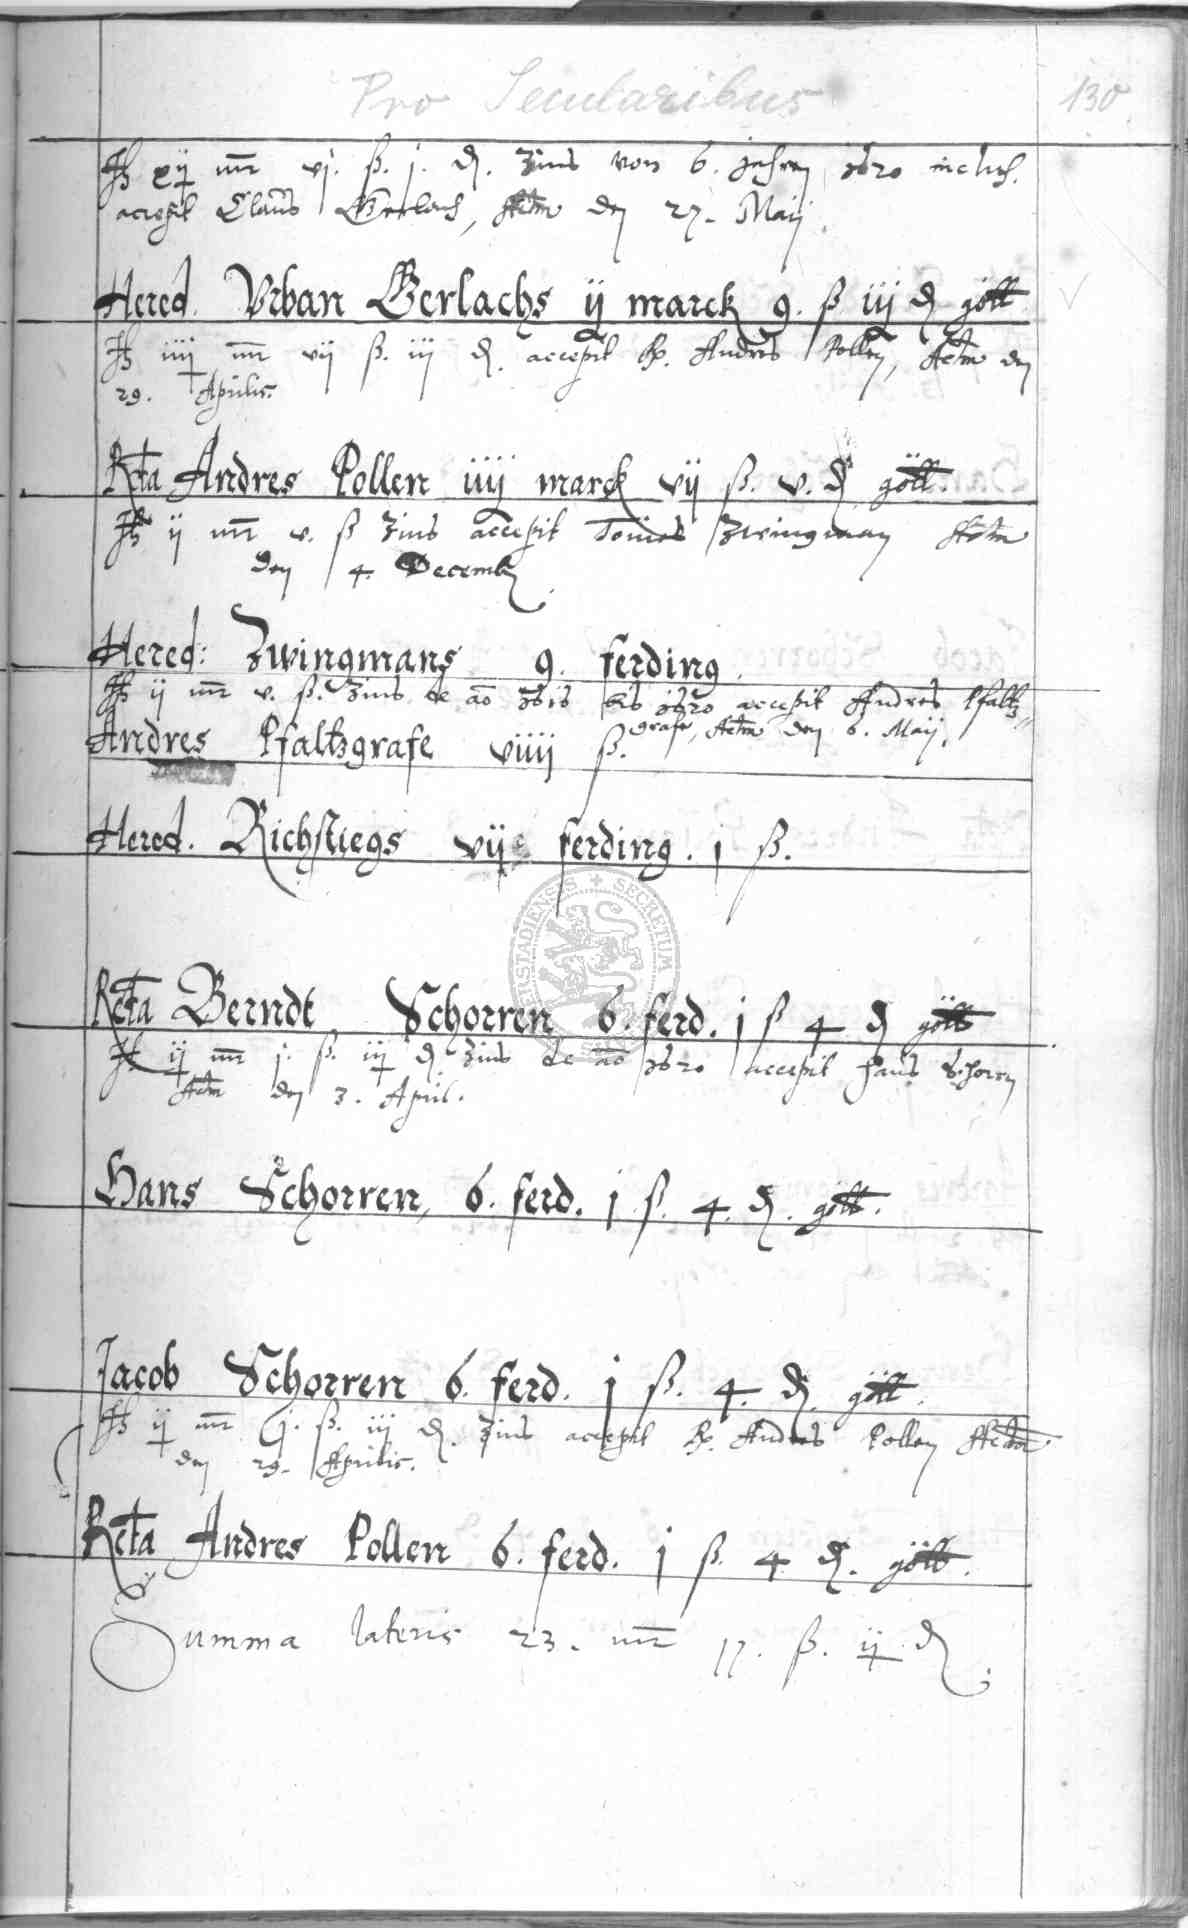 Pro Secularibus 130
mr vj. ß. j. d. Zins von 6. jahren 1620 inclus.
accepit Claus Gerlach, Actum den 27. Maij.
Hered. Vrban Gerlachs ij marck 9. ß iij d gött
iiij mr vij ß. iij d. accepit H. Andres Pollen, Actum den
29. Aprilis.
Rcta Andres Pollen iiij marck vij ß. v. d gött.
ij mr v. ß Zins accepit Zwingman Actum
den 4. Decemb
Hered: Zwingmans 9. ferding
ij mr v. ß. Zins de ao bis 1620 accepit Andres Pfaltz
grafe, Actum den 6. Maij.
Andres Pfaltzgrafe viiij ß.
Hered. Richstiegs vij ferding. j ß.
STADIENSIS + SECRETUM
Rcta Berndt Schorren 6. ferd. j ß 4 d gött
ij mr j. ß. iij d Zins de ao 1620 accepit Hans Schorren
Actum den 3. April.
Hans Schorren, 6. ferd. j ß. 4. d. gött.
Jacob Schorren 6. ferd. j ß. 4. d. gött.
ij mr j. ß. iij d. Zins accepit H. Andres Pollen Actum
den 29. Aprilis.
Rcta Andres Pollen 6. ferd. j ß. 4 d. gött.
Summa lateris 23. mr 17. ß. ij d